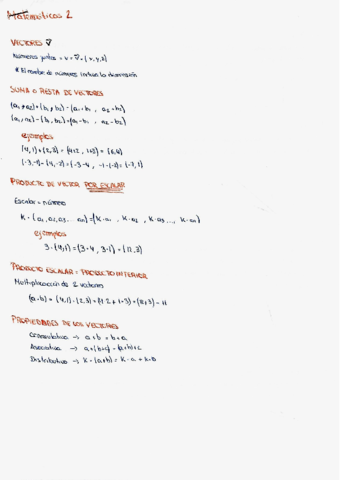 Matemáticas 2
VECTORES ∇
Números juntos = v = v̄ = (x, y, z)
* El nombre de números indican la dimensión
SUMA o RESTA DE VECTORES
(a₁, a₂) + (b₁, b₂) = (a₁ + b₁, a₂ + b₂)
(a₁, a₂) - (b₁, b₂) = (a₁ - b₁, a₂ - b₂)
ejemplos
(4,1) + (2,3) = (4+2, 1+3) = (6,4)
(-3,-1) - (4,-2) = (-3-4, -1-(-2)) = (-7,1)
PRODUCTO DE VECTOR POR ESCALAR
Escalar = número
K · (a₁, a₂, a₃ ... aₙ) = (K·a₁, K·a₂, K·a₃ ..., K·aₙ)
ejemplos
3 · (4,1) = (3·4, 3·1) = (12,3)
PRODUCTO ESCALAR = PRODUCTO INTERIOR
Multiplicación de 2 vectores
(a·b) = (4,1) · (2,3) = (4·2 + 1·3) = (8+3) = 11
PROPIEDADES DE LOS VECTORES
Conmutativa → a+b = b+a
Asociativa → a+(b+c) = (a+b)+c
Distributiva → K·(a+b) = K·a + K·b